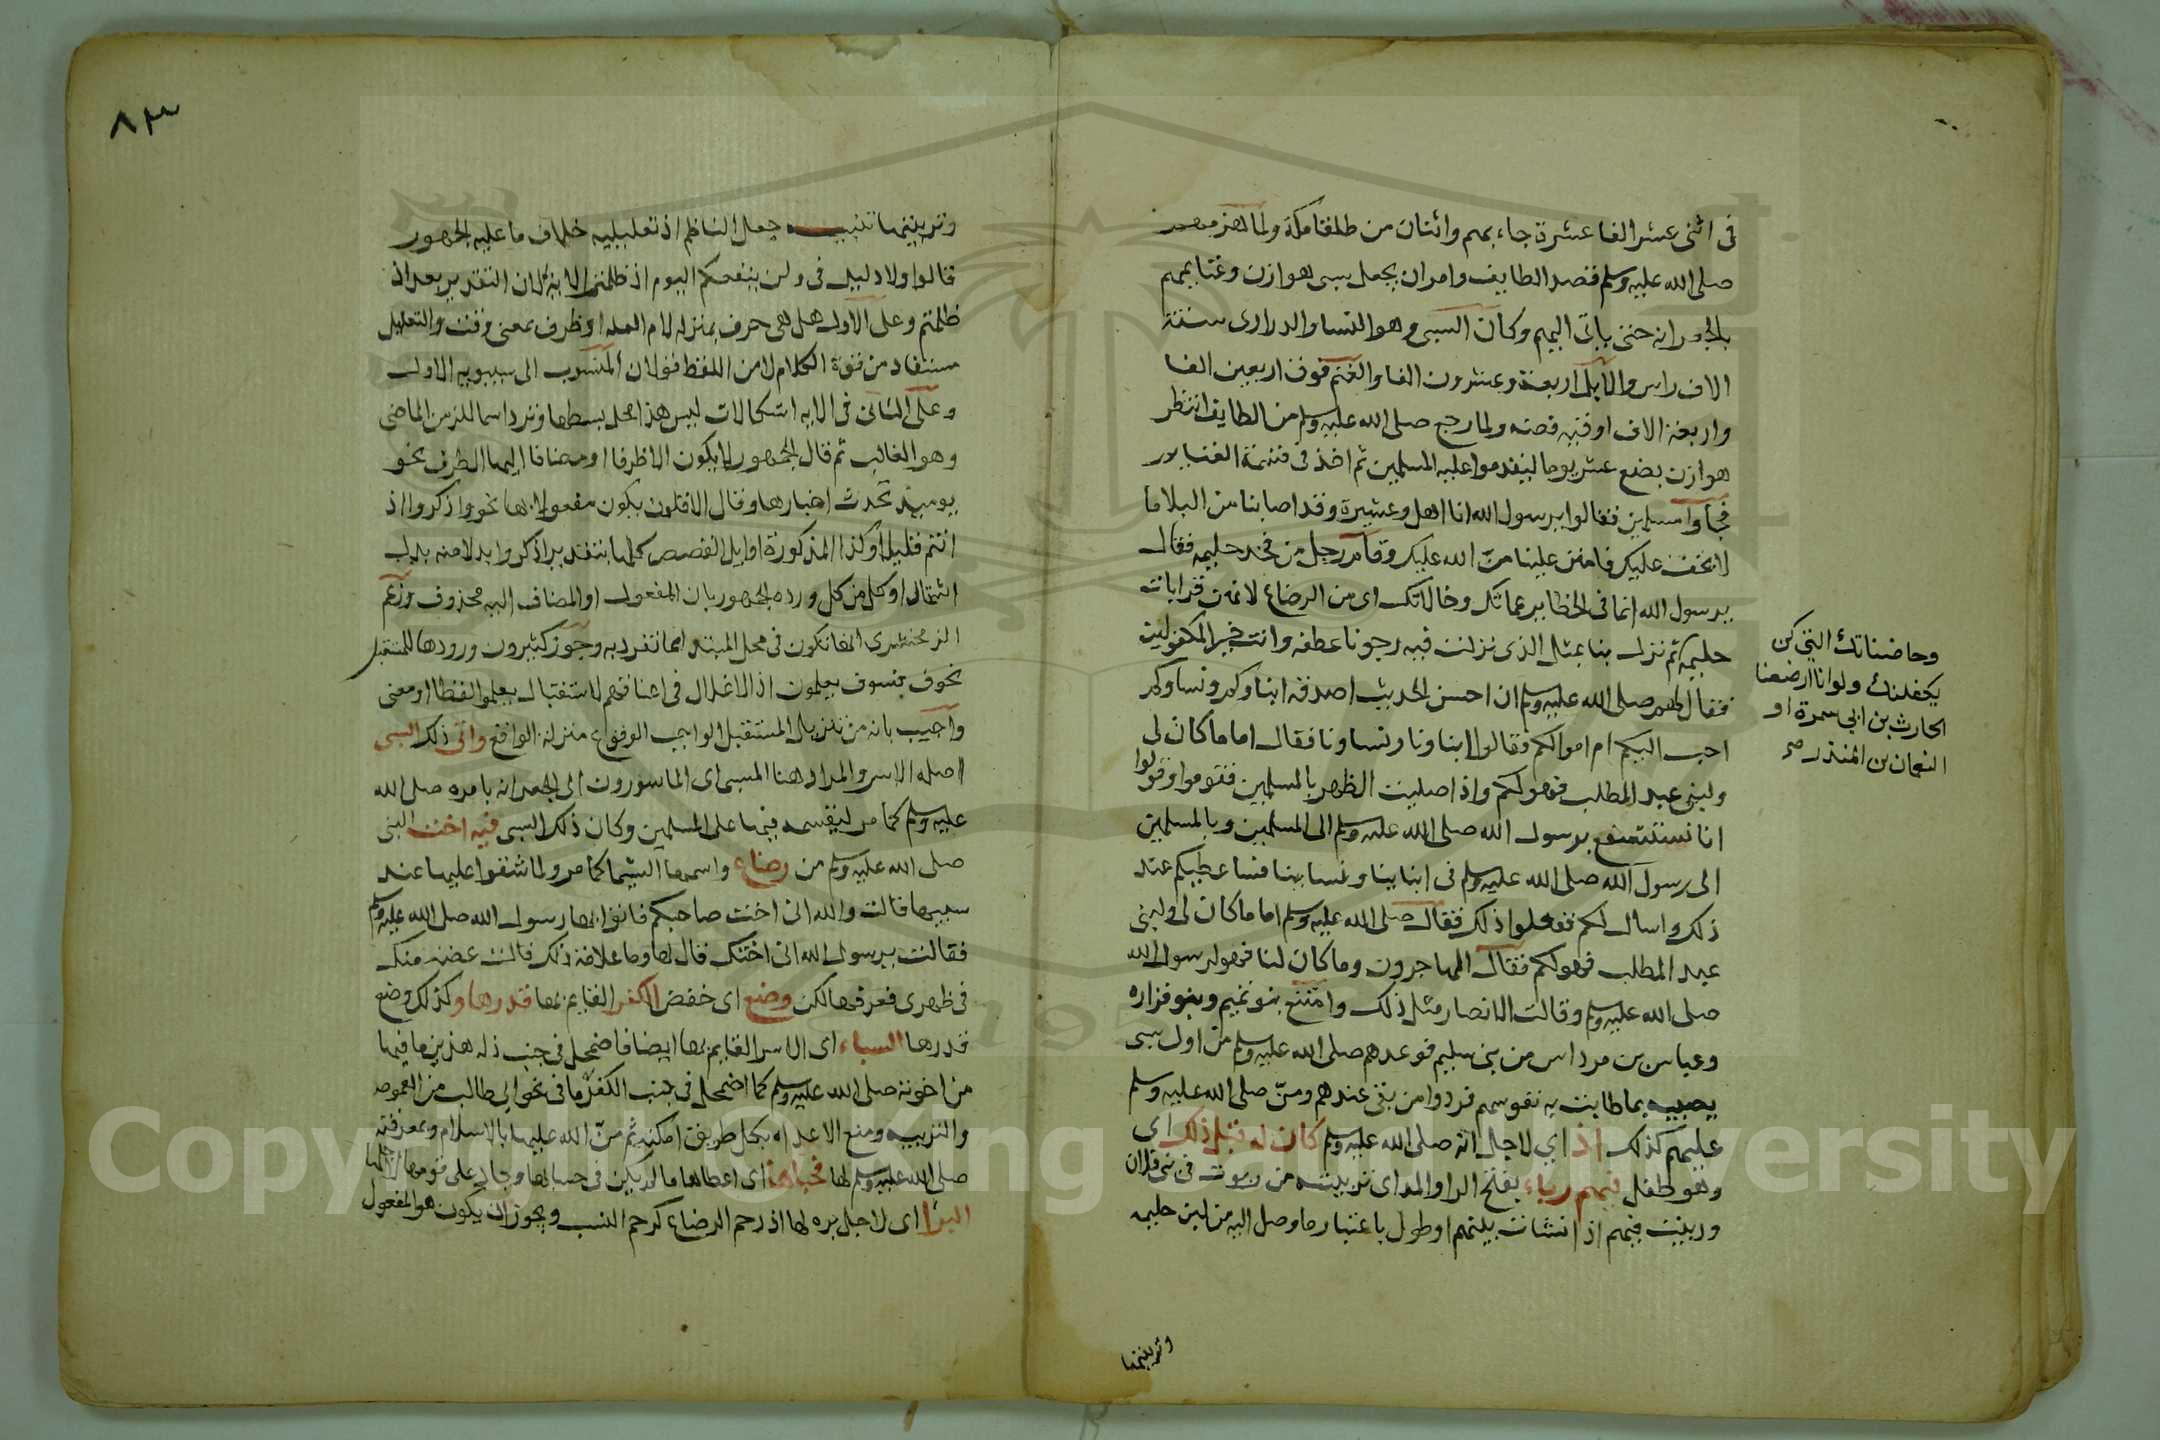 في اثنى عشر الفا عشرة جاء بهم واثنان من طلقا مكة ولما هزمهم
صلى الله عليه وسلم قصد الطايف وامر ان يجعل سبى هوازن وغنايمهم
بالجعرانه حتى ياتى اليهم وكان السبى وهو النسا والدرارى ستة
الاف راس والابل اربعة وعشرون الفا والغنم فوق اربعين الفا
واربعة الاف اوقيه فضه ولما رجع صلى الله عليه وسلم من الطايف انتظر
هوازن بضع عشر يوما ليقدموا عليه المسلمين ثم اخذ في قسمة الغنايم
فجاوا مسلمين فقالوا يرسول الله انا اهل وعشيرة وقد اصابنا من البلا ما
لا يخف عليك فامنن علينا منّ الله عليك وقام رجل من فخذ حليمه فقال
يرسول الله انما في الحظاير عماتك وخالاتك اى من الرضاع لانهن قرابات
حليمه ثم نزل بنا بمثل الذى نزلت فيه رجونا عطفه وانت خير المكفولين
وحاضناتك التي كن
يكفلنك ولو انا ارضعنا
الحارث بن ابي سمرة او
النعمان بن المنذر صح
فقال لهم صلى الله عليه وسلم ان احسن الحديث اصدقه ابناوكم ونساوكم
احب اليكم ام اموالكم فقالوا ابناونا ونساونا فقال اما ما كان لى
ولبني عبد المطلب فهو لكم واذا صليت الظهر بالمسلمين فقوموا وقولوا
انا نستشفع برسول الله صلى الله عليه وسلم الى المسلمين وبالمسلمين
الى رسول الله صلى الله عليه وسلم في ابناينا ونساينا فساعطيكم عند
ذلك واسال لكم ففعلوا ذلك فقال صلى الله عليه وسلم اما ما كان لى ولبنى
عبد المطلب فهو لكم فقال المهاجرون وما كان لنا فهو لرسول الله
صلى الله عليه وسلم وقالت الانصار مثل ذلك وامتنع بنو تميم وبنو فزاره
وعباس بن مرداس من بني سليم فوعدهم صلى الله عليه وسلم من اول سبى
يصيبه بما طابت به نفوسهم فردوا من بقى عندهم ومنّ صلى الله عليه وسلم
عليهم كذلك اذ اي لاجل انه صلى الله عليه وسلم كان له قبل ذلك اى
وهو طفل فيهم رباء بفتح الرا والمد اى تربيته من ربوت في بنى فلان
وربيت فيهم اذ انشات بينهم او طول باعتبار ما وصل اليه من لبن حليمه
وتربيتها
٨٣
وتربيتها تنبيه جعل الناظم اذ تعليليه خلاف ما عليه الجمهور
قالوا ولا دليل في ولن ينفعكم اليوم اذ ظلمتم الاية لان التقدير بعد اذ
ظلمتم وعلى الاول هل هى حرف بمنزله لام العله او ظرف بمعنى وقت والتعليل
مستفاد من قوة الكلام لا من اللفظ قولان المنسوب الى سيبويه الاول
وعلى الثانى في الايه اشكالات ليس هذا محل بسطها وترد اسما للزمن الماضى
وهو الغالب ثم قال الجمهور لا يكون الا ظرفا او مضافا اليها الظرف نحو
يوميذ تحدث اخبارها وقال الاقلون يكون مفعولا بها نحو واذكروا اذ
انتم قليل وكذا المذكورة اوايل القصص كلها بتقدير اذكر او بدلا منه بدل
اشتمال او كل من كل ورده الجمهور بان المفعول او المضاف اليه محذوف وزعم
الزمخشرى انها تكون في محل المبتدا مما تفرد به وجوز كثيرون ورودها للمستقبل
نحو فسوف يعلمون اذ الاغلال في اعناقهم لاستقبال يعلموا لفظا ومعنى
واجيب بانه من تنزيل المستقبل الواجب الوقوع منزلة الواقع واتى ذلك السبى
اصله الاسر والمراد هنا المسبى اى الماسورون الى الجعرانه بامره صلى الله
عليه وسلم كما مر ليقسمه فيها على المسلمين وكان ذلك السبى فيه اخت النبى
صلى الله عليه وسلم من رضاع واسمها الشيما كما مر ولما شقوا عليها عند
سبيها قالت والله انى اخت صاحبكم فاتوا بها رسول الله صلى الله عليه وسلم
فقالت يرسول الله انى اختك قال لها وما علامة ذلك قالت عضة منك
في ظهرى فعرفها لكن وضع اى خفض الكفر القايم بها قدرها و كذلك وضع
قدرها السباء اى الاسر القايم بها ايضا فاضمحل في جنب ذله هذين ما فيها
من اخوته صلى الله عليه وسلم كما اضمحل في جنب الكفر ما في نحو ابى طالب من العمومه
والتربيه ومنع الاعداء بكل طريق امكنه ثم منّ الله عليها بالاسلام وبمعرفته
صلى الله عليه وسلم لها فحباها اى اعطاها ما لم يكن في حسابها وجاد على قومها لاجلها
البرا اى لاجل بره لها اذ رحم الرضاع كرحم النسب ويجوز ان يكون هو المفعول